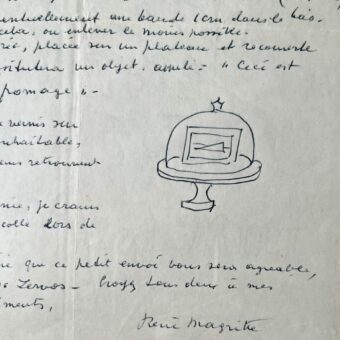 éventuellement une bande 1 cm dans le bas.
cela, ou enlever le moins possible.
placée sur un plateau et recouverte
stituera un objet, appelé = "Ceci est
fromage" -
vernis sur
ouhaitable,
retrouvent
je crains
colle lors de
que ce petit envoi vous sera agréable,
Zervos - Croyez tous deux à mes
timents,
René Magritte